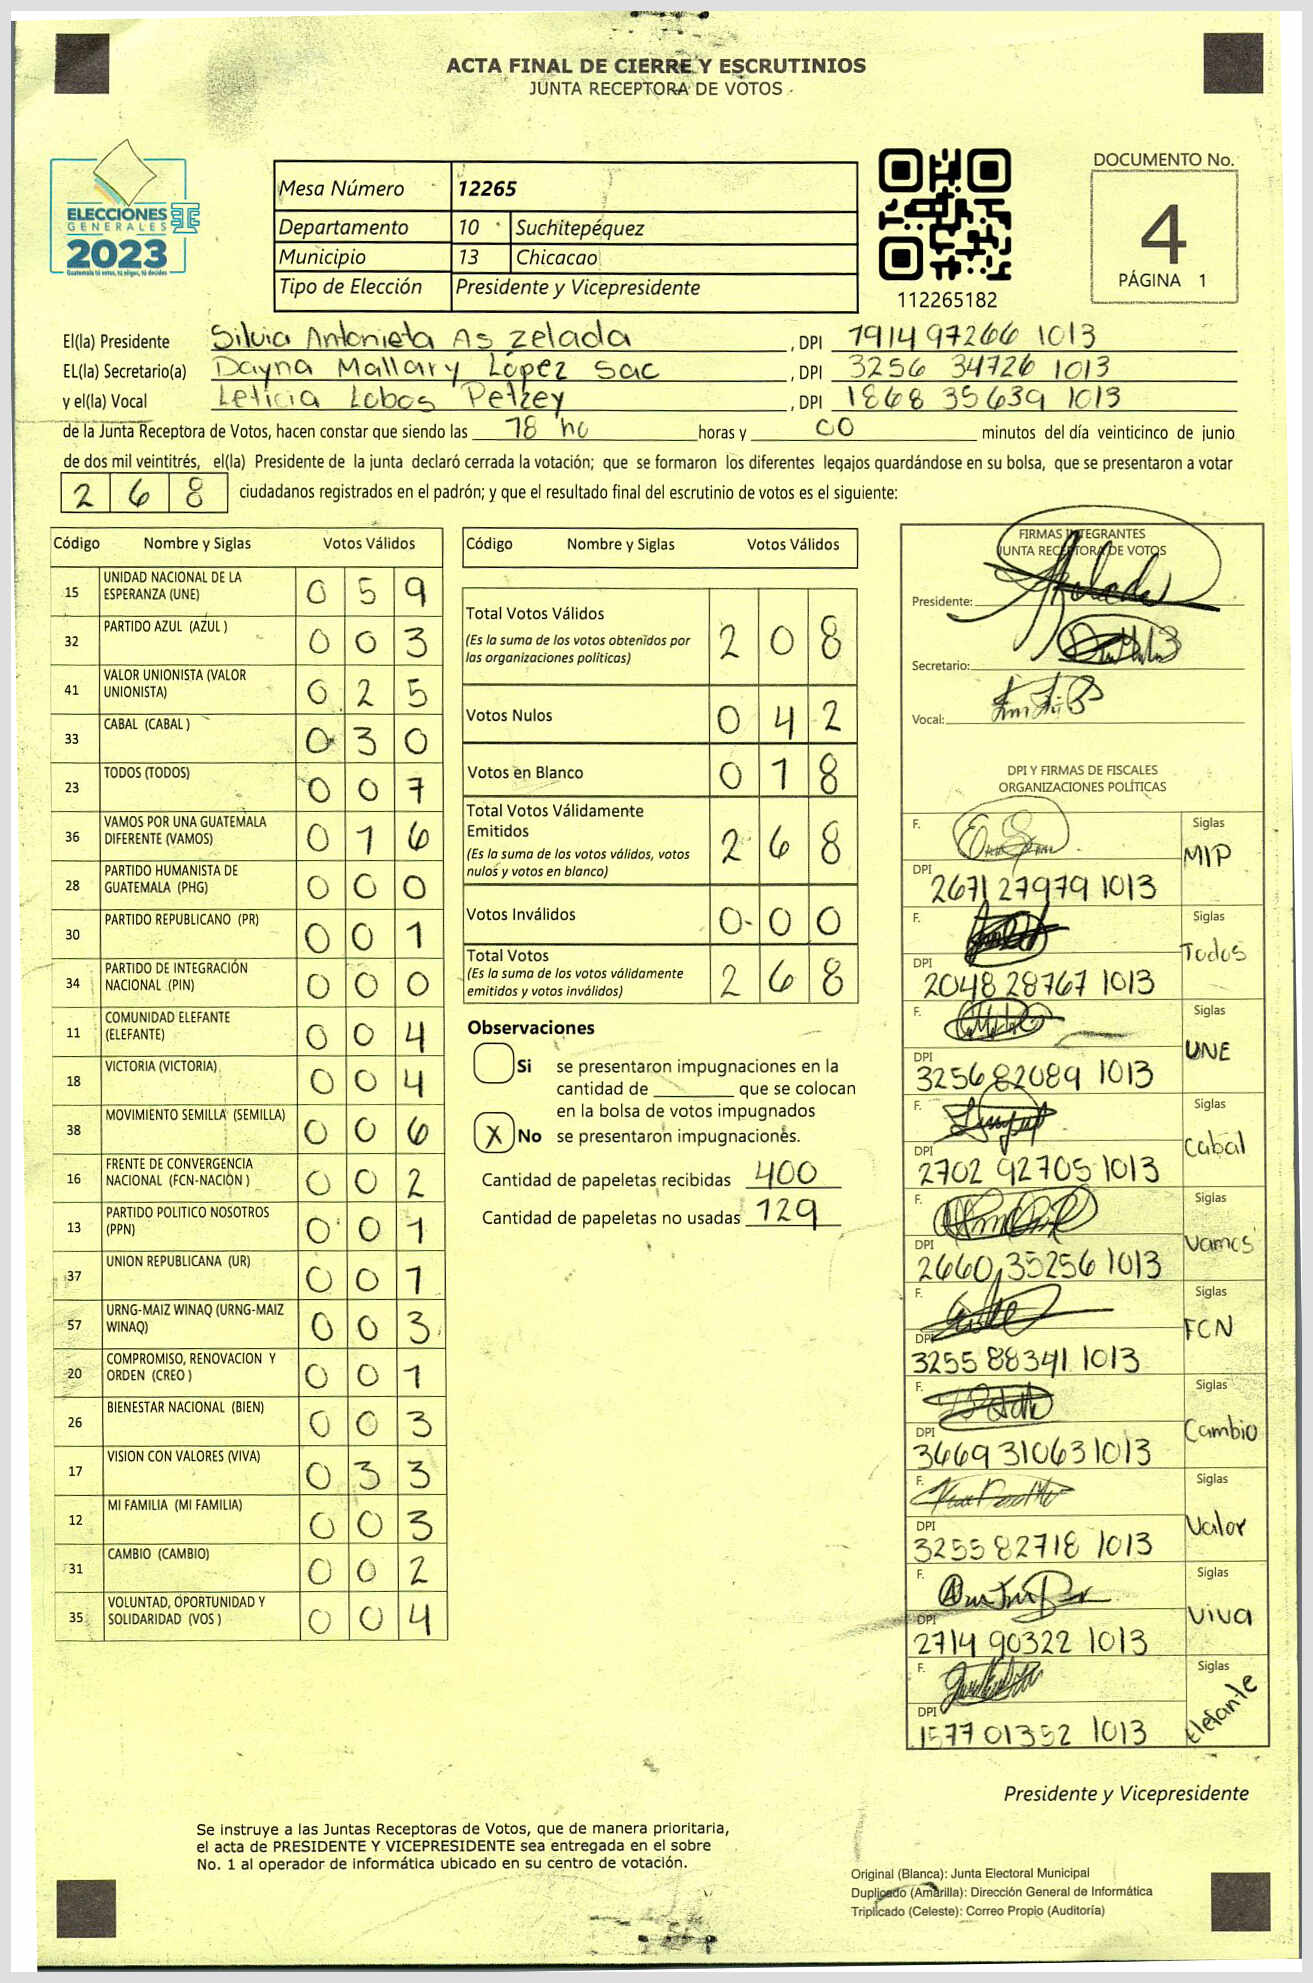 ACTA FINAL DE CIERRE Y ESCRUTINIOS
JUNTA RECEPTORA DE VOTOS
ELECCIONES
GENERALES
2023
Guatemala tú votas, tú eliges, tú decides
Mesa Número 12265
Departamento 10 Suchitepéquez
Municipio 13 Chicacao
Tipo de Elección Presidente y Vicepresidente
112265182
DOCUMENTO No.
4
PÁGINA 1
El(la) Presidente Silvia Antonieta As zelada , DPI 1914 97266 1013
EL(la) Secretario(a) Dayna Mallary López Sac , DPI 3256 34726 1013
y el(la) Vocal Leticia Lobos Petzey , DPI 1868 35639 1013
de la Junta Receptora de Votos, hacen constar que siendo las 18 horas y 00 minutos del día veinticinco de junio
de dos mil veintitrés, el(la) Presidente de la junta declaró cerrada la votación; que se formaron los diferentes legajos guardándose en su bolsa, que se presentaron a votar
2 6 8 ciudadanos registrados en el padrón; y que el resultado final del escrutinio de votos es el siguiente:
Código Nombre y Siglas Votos Válidos
15 UNIDAD NACIONAL DE LA ESPERANZA (UNE) 0 5 9
32 PARTIDO AZUL (AZUL ) 0 0 3
41 VALOR UNIONISTA (VALOR UNIONISTA) 0 2 5
33 CABAL (CABAL ) 0 3 0
23 TODOS (TODOS) 0 0 7
36 VAMOS POR UNA GUATEMALA DIFERENTE (VAMOS) 0 1 6
28 PARTIDO HUMANISTA DE GUATEMALA (PHG) 0 0 0
30 PARTIDO REPUBLICANO (PR) 0 0 1
34 PARTIDO DE INTEGRACIÓN NACIONAL (PIN) 0 0 0
11 COMUNIDAD ELEFANTE (ELEFANTE) 0 0 4
18 VICTORIA (VICTORIA) 0 0 4
38 MOVIMIENTO SEMILLA (SEMILLA) 0 0 6
16 FRENTE DE CONVERGENCIA NACIONAL (FCN-NACION ) 0 0 2
13 PARTIDO POLITICO NOSOTROS (PPN) 0 0 1
37 UNION REPUBLICANA (UR) 0 0 1
57 URNG-MAIZ WINAQ (URNG-MAIZ WINAQ) 0 0 3
20 COMPROMISO, RENOVACION Y ORDEN (CREO ) 0 0 1
26 BIENESTAR NACIONAL (BIEN) 0 0 3
17 VISION CON VALORES (VIVA) 0 3 3
12 MI FAMILIA (MI FAMILIA) 0 0 3
31 CAMBIO (CAMBIO) 0 0 2
35 VOLUNTAD, OPORTUNIDAD Y SOLIDARIDAD (VOS ) 0 0 4
Código Nombre y Siglas Votos Válidos
Total Votos Válidos 2 0 8
(Es la suma de los votos obtenidos por
las organizaciones políticas)
Votos Nulos 0 4 2
Votos en Blanco 0 1 8
Total Votos Válidamente
Emitidos 2 6 8
(Es la suma de los votos válidos, votos
nulos y votos en blanco)
Votos Inválidos 0 0 0
Total Votos 2 6 8
(Es la suma de los votos válidamente
emitidos y votos inválidos)
Observaciones
Si se presentaron impugnaciones en la
cantidad de ________ que se colocan
en la bolsa de votos impugnados
X No se presentaron impugnaciones.
Cantidad de papeletas recibidas 400
Cantidad de papeletas no usadas 129
FIRMAS INTEGRANTES
JUNTA RECEPTORA DE VOTOS
Presidente:
Secretario:
Vocal:
DPI Y FIRMAS DE FISCALES
ORGANIZACIONES POLÍTICAS
F. Siglas
MIP
DPI 2671 27979 1013
F. Siglas
Todos
DPI 2048 28767 1013
F. Siglas
UNE
DPI 3256 82089 1013
F. Siglas
Cabal
DPI 2702 92705 1013
F. Siglas
Vamos
DPI 2660 35256 1013
F. Siglas
FCN
DPI 3255 88341 1013
F. Siglas
Cambio
DPI 3669 31063 1013
F. Siglas
Valor
DPI 3255 82718 1013
F. Siglas
VIVA
DPI 2714 90322 1013
F. Siglas
Elefante
DPI 1577 01352 1013
Presidente y Vicepresidente
Se instruye a las Juntas Receptoras de Votos, que de manera prioritaria,
el acta de PRESIDENTE Y VICEPRESIDENTE sea entregada en el sobre
No. 1 al operador de informática ubicado en su centro de votación.
Original (Blanca): Junta Electoral Municipal
Duplicado (Amarilla): Dirección General de Informática
Triplicado (Celeste): Correo Propio (Auditoría)